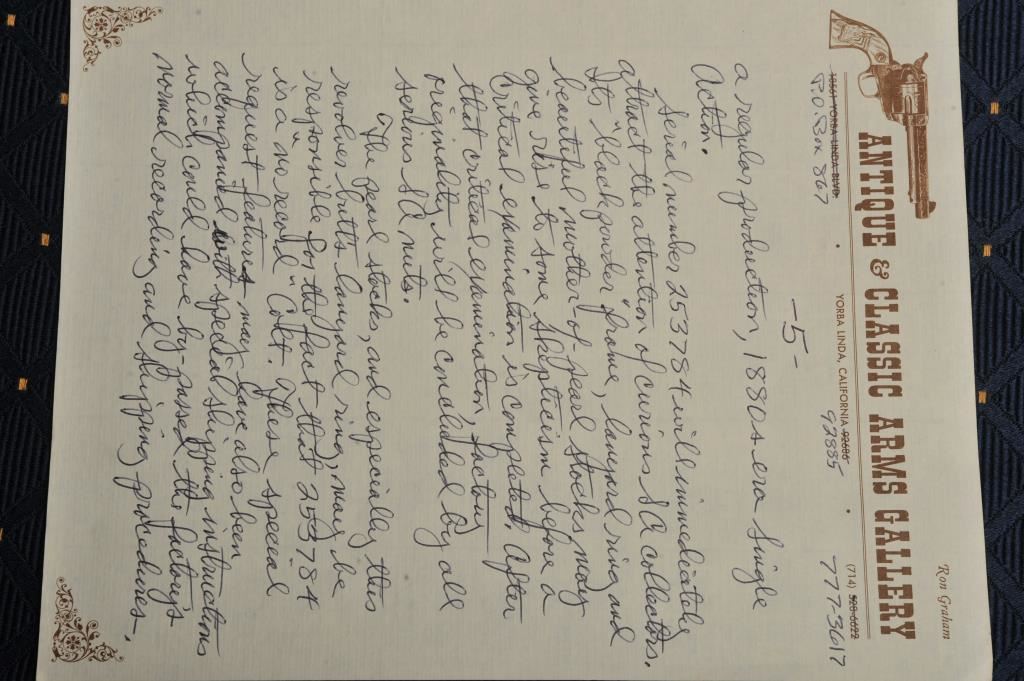 Ron Graham
ANTIQUE & CLASSIC ARMS GALLERY
18561 YORBA LINDA BLVD. • YORBA LINDA, CALIFORNIA 92686 • (714) 528-6622
P.O. Box 867 92885 777-3617
-5-
a regular production, 1880s era Single
Action.
Serial number 253784 will immediately
attract the attention of curious SA collectors.
Its "black powder" frame, lanyard ring and
beautiful mother-of-pearl stocks may
give rise to some skepticism before a
critical examination is completed. After
that critical examination, factory
originality will be concluded by all
serious SA nuts.
The pearl stocks, and especially this
revolver butt's lanyard ring, may be
responsible for the fact that 253784
is a "no record" Colt. These special
request features may have also been
accompanied with special shipping instructions
which could have by-passed the factory's
normal recording and shipping procedures.